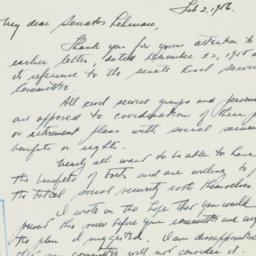 Feb 2, 1956.
My dear Senator Lehman,
Thank you for your attention to
earlier letter, dated December 22, 1955 a
its reference to the Senate Civil Serv
Committee.
All civil service groups and person
are opposed to coordination of their p
or retirement plans with social secur
benefits or right.
Nearly all want to be able to have
the benefits of both and are willing to
the total social security costs themselves
I wrote in the hope that you would
present this view before your committee and urg
the plan I suggested. I am disappointed
that your committee will not consider it.